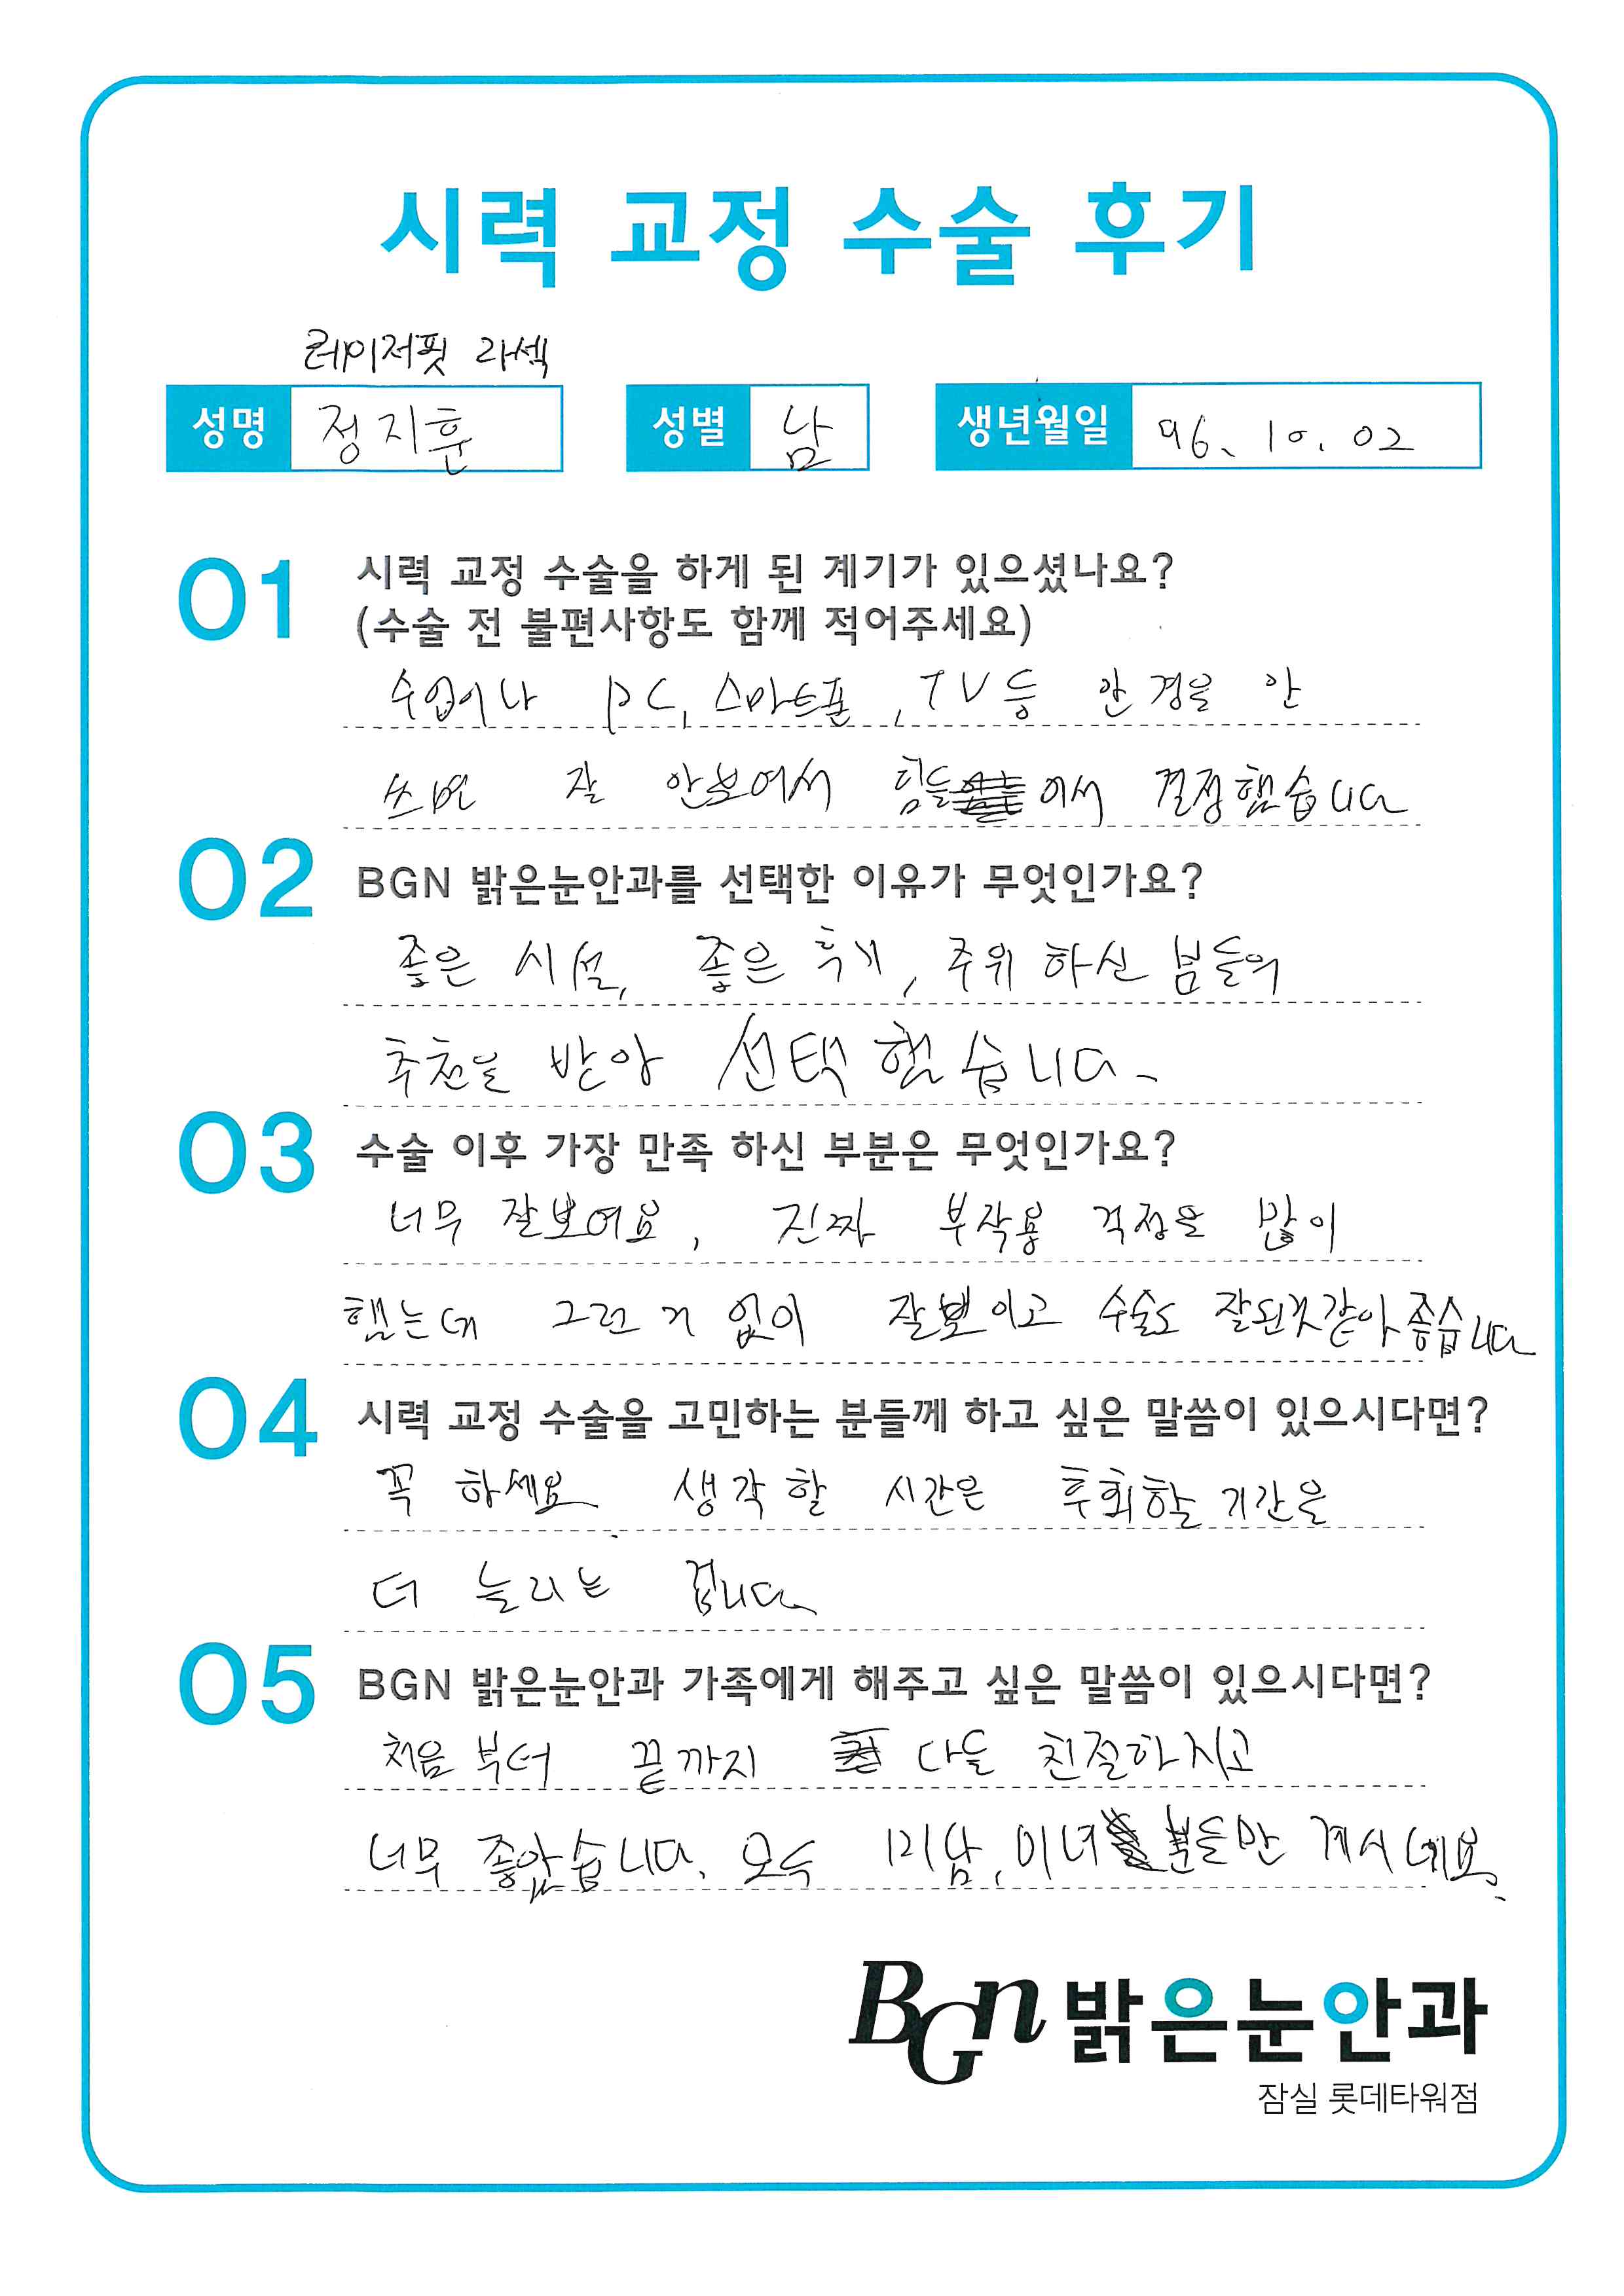 시력 교정 수술 후기
레이저핏 라섹
성명 정지훈 성별 남 생년월일 96. 10. 02
01 시력 교정 수술을 하게 된 계기가 있으셨나요?
(수술 전 불편사항도 함께 적어주세요)
수업이나 PC, 스마트폰, TV 등 안경을 안
쓰면 잘 안보여서 힘들어서 결정했습니다
02 BGN 밝은눈안과를 선택한 이유가 무엇인가요?
좋은 시설, 좋은 후기, 주위 하신 분들의
추천을 받아 선택 했습니다.
03 수술 이후 가장 만족 하신 부분은 무엇인가요?
너무 잘보여요, 진짜 부작용 걱정을 많이
했는데 그런 거 없이 잘보이고 수술도 잘된것같아 좋습니다
04 시력 교정 수술을 고민하는 분들께 하고 싶은 말씀이 있으시다면?
꼭 하세요. 생각할 시간은 후회할 기간을
더 늘리는 겁니다.
05 BGN 밝은눈안과 가족에게 해주고 싶은 말씀이 있으시다면?
처음 부터 끝까지 다들 친절하시고
너무 좋았습니다. 모두 미남, 미녀 분들만 계시네요.
BGN 밝은눈안과
잠실 롯데타워점